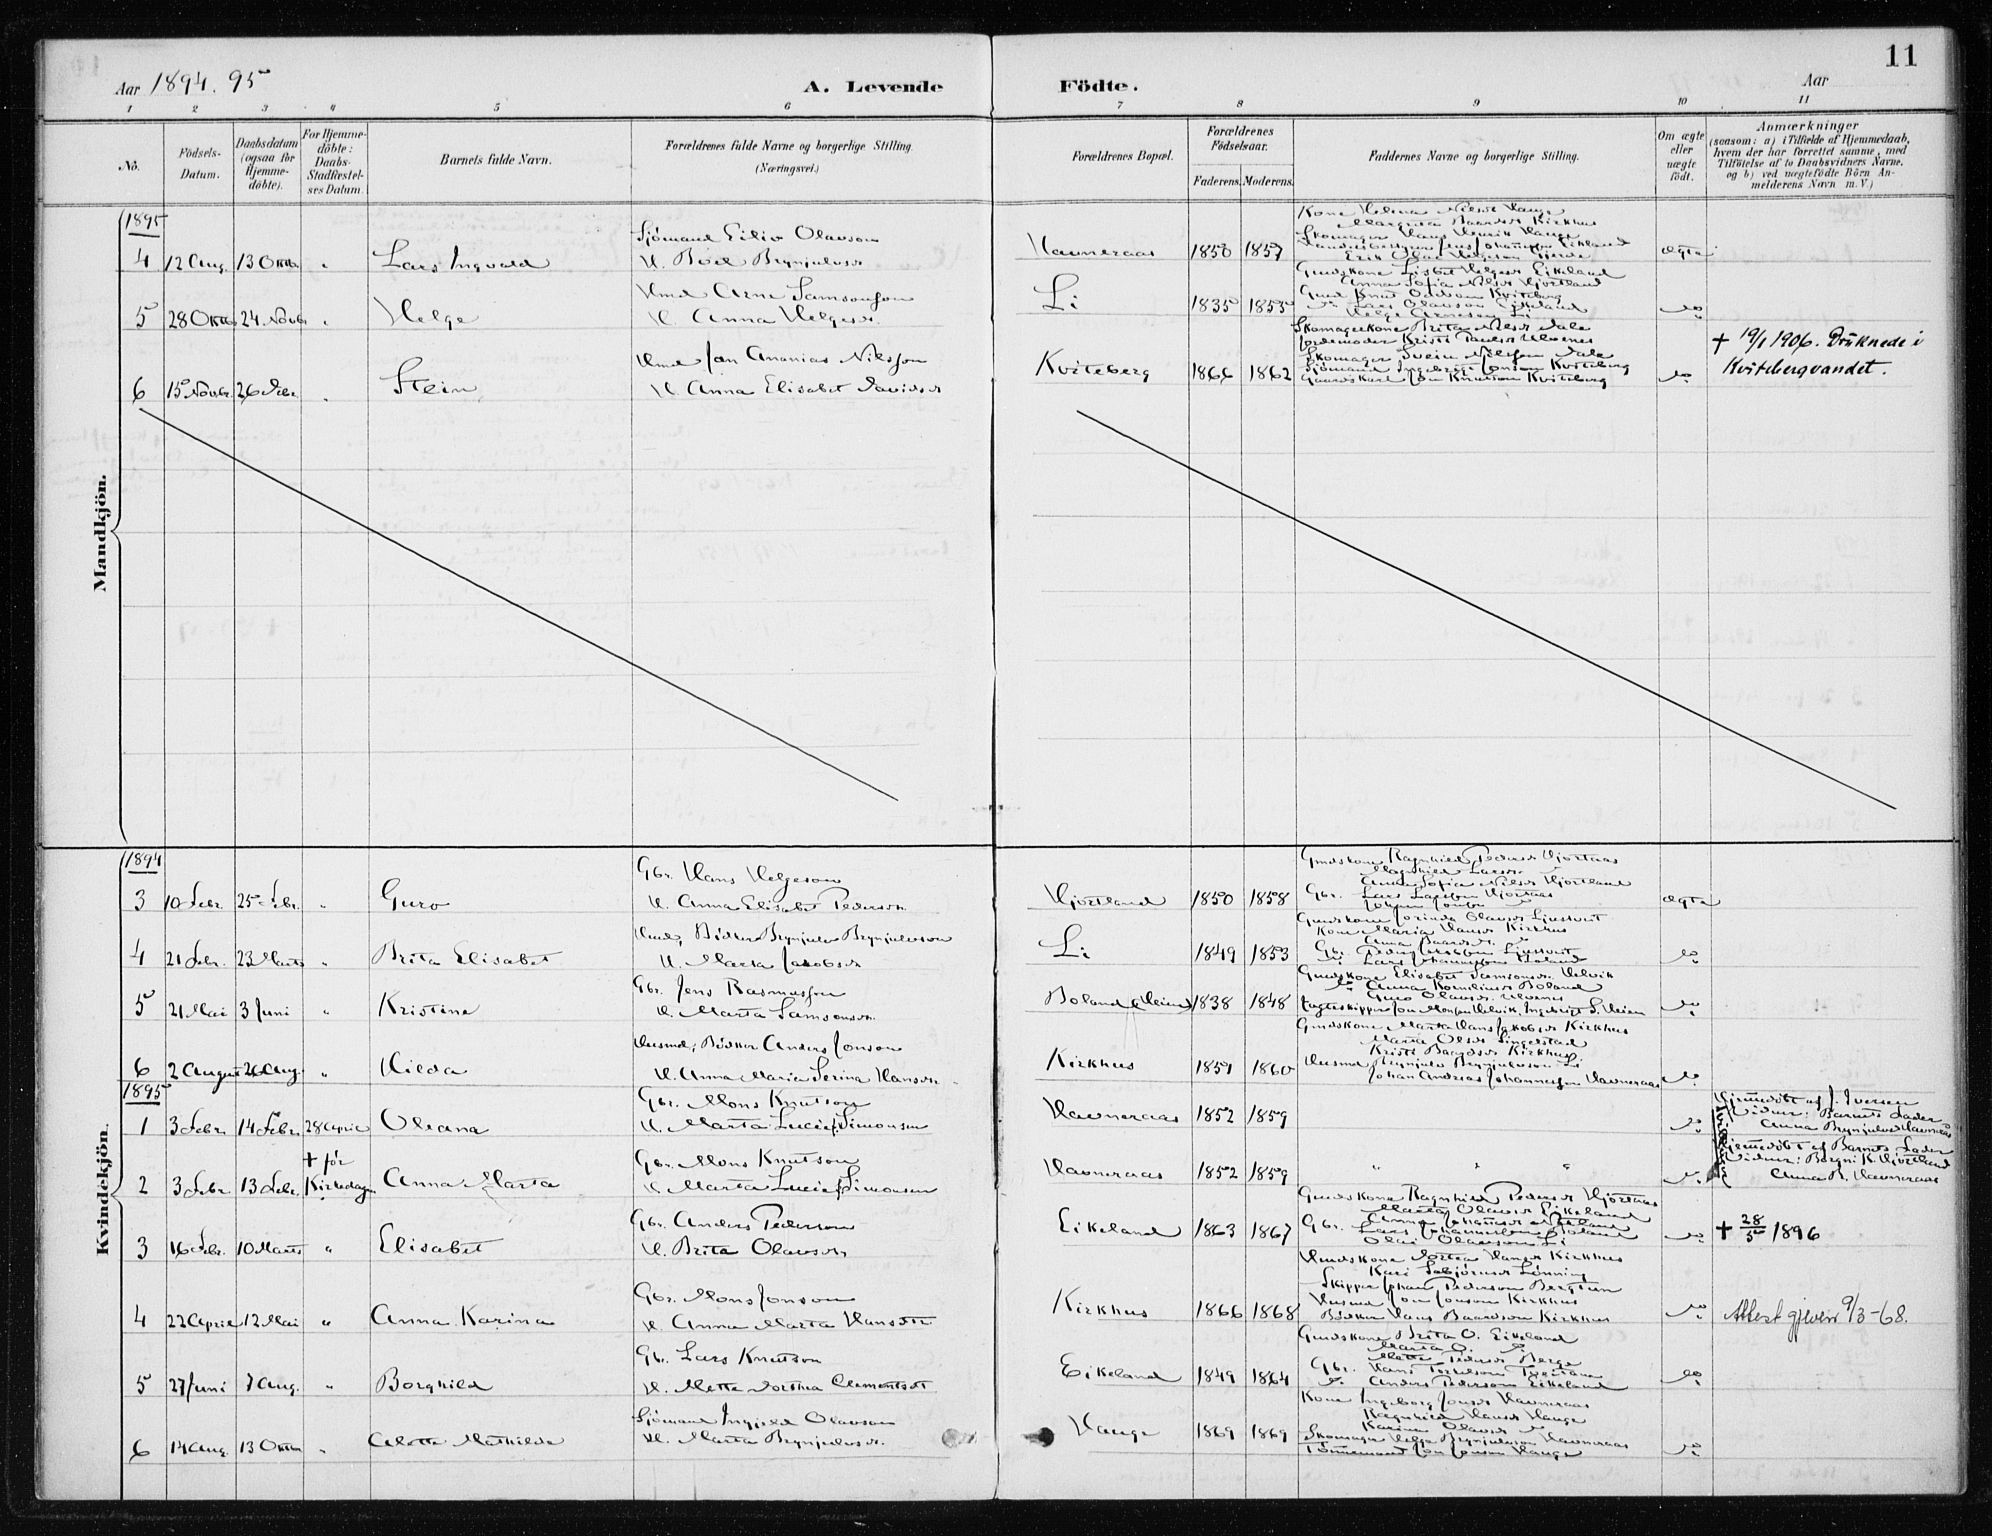 11
Aar 1894. 95
A. Levende
Födte.
Aar
1 2 3 4 5 6 7 8 9 10 11
No.
Födsels-
Datum.
Daabsdatum
(ogsaa for
Hjemme-
döbte).
For Hjemme-
döbte:
Daabs-
Stadfæstel-
ses Datum.
Barnets fulde Navn.
Forældrenes fulde Navne og borgerlige Stilling.
(Næringsvei.)
Forældrenes Bopæl.
Forældrenes
Födselsaar.
Faderens. Moderens.
Faddernes Navne og borgerlige Stilling.
Om ægte
eller
uægte
födt.
Anmærkninger
(saasom: a) i Tilfælde af Hjemmedaab,
hvem der har forrettet samme, med
Tilföielse af to Daabsvidners Navne.
og b) ved uægtefödte Börn An-
melderens Navn m. V.)
Mandkjön.
1895
4 12 Aug. 13 Oktb. " Lars Ingvald
Sjömand Eiliv Olavson
H. Boel Brynjulvsdr
Havneraas 1850 1857
Kone Helena Nilsdr Hauge
Margreta Baardsdr Kirkhus
Skomager Hans Henrik Hauge
Erik Olai Helgeson Gjerde
ægte
5 28 Oktb. 24. Novb. " Helge
Hmd Arne Samsonson
H. Anna Helgesdr.
Li 1835 1853
Gmdskone Lisbet Helgesdr Eikeland
Anna Sofia Nilsdr Hjortland
Gmd Knut Oddson Kviteberg
Do Lars Olavson Eikeland
Helge Arneson Li
Do
6 15 Novbr. 26 Debr. " Stein
Hmd Jon Ananias Nilsson
H. Anna Elisabet Davidsdr
Kviteberg 1866 1862
Skomagerkone Brita Nilsdr Dale
Jordemoder Kristi Paulsdr Ulvenes
Skomager Svein Nilsson Dale
Sjömand Ingebrigt Jonson Kviteberg
Gaardskarl Jon Knutson Kviteberg
Do
+ 19/1 1906. Druknede i
Kvitebergvandet.
Kvindekjön.
1894
3 10 Febr. 25 Febr. " Guro
Gbr. Hans Helgeson
H. Anna Elisabet Pedersdr.
Hjortland 1850 1858
Gmdskone Ragnhild Pedersdr Hjortaas
Magnhild Larsdr.
Anna Sofia Nilsdr Hjortland
Gbr. Lars Larsson Hjortaas
ægte
4 21 Febr. 23 Marts " Brita Elisabet
Hmd, Bödker Brynjulv Brynjulvson
H. Marta Jakobsdr
Li 1849 1853
Gmdskone Jorinda Olavsdr Ljusvert
Kone Maria Hansdr Kirkhus
Anna Baardsdr. Do
Do
5 21 Mai 3 Juni " Kristine
Gbr. Jens Rasmusson
H. Marta Samsonsdr.
Boland (Heien) 1838 1848
Gmdskone Elisabet Samsonsdr. Helvik
Do Anna Korneliusdr Boland
Guro Olavsdr. Ulvenes
Do
6 2 August 26 Aug. " Hilda
Husmd, Bödker Anders Jonson
H. Anna Maria Serina Hansdr.
Kirkhus 1859 1860
Gmdskone Marta Hans Jakobsdr Kirkhus
Marta Olsdr Singelstad
Kristi Baardsdr Kirkhus
Husmd Brynjulv Brynjulvson Li
Johan Andreas Johannesson Havneraas
Do
1895
1 3 Febr. 14 Febr. 28 April Oleana
Gbr. Mons Knutson
H. Marta Lucie Simonsen
Havneraas 1852 1859
Do
Hjemmedöbt af J. Iversen
Vidner: Barnets Fader
Anna Brynjulvsdr Havneraas
2 3 Febr. 13 Febr. + för
Kirkedagen Anna Marta
Gbr. Mons Knutson
H. Marta Lucie Simonsen
Havneraas 1852 1859 " " "
Do
Hjemmedöbt af Barnets Fader
Vidner: Borgni K. Hjortland
Anna B. Havneraas
3 16 Febr. 10 Marts " Elisabet
Gbr. Anders Pederson
H. Brita Olavsdr
Eikeland 1863 1867
Gmdskone Ragnhild Pedersdr Hjortaas
Marta Olavsdr Eikeland
Gbr. Lars Johannesson Boland
Olai Olavson Li
Do
+ 28/5 1896
4 22 April 12 Mai " Anna Karina
Gbr. Mons Jonson
H. Anna Marta Hansdtr
Kirkhus 1866 1868
Gmdskone Dortea Hansdr Kirkhus
Kari Sæbjörnsdr Lönning
Skipper Johan Pederson Bergtun
Husmd Jon Jonson Kirkhus
Bödker Hans Baardson Kirkhus
Do
Attest gjeven 9/3-68.
5 27 Juni 7 Aug. " Borghild
Gbr. Lars Knutson
H. Mette Dorthea Clementsdt
Eikeland 1849 1864
Gmdskone Brita O. Eikeland
Marta O. Do
Mette Pedersdr Berge
Gbr. Hans Torkelson Tveitane
Do Anders Pederson Eikeland
Do
6 14 Aug. 13 Oktbr " Alette Mathilde
Sjömand Ingjeld Olavson
H. Marta Brynjulvsdr.
Hauge 1869 1869
Kone Ingeborg Jonsdr Havneraas
Ragnhild Hansdr Hauge
Karina Olavsdr Do
Skomager Helge Brynjulvson Havneraas
Tömmermand Jon Jonson Hauge
Do